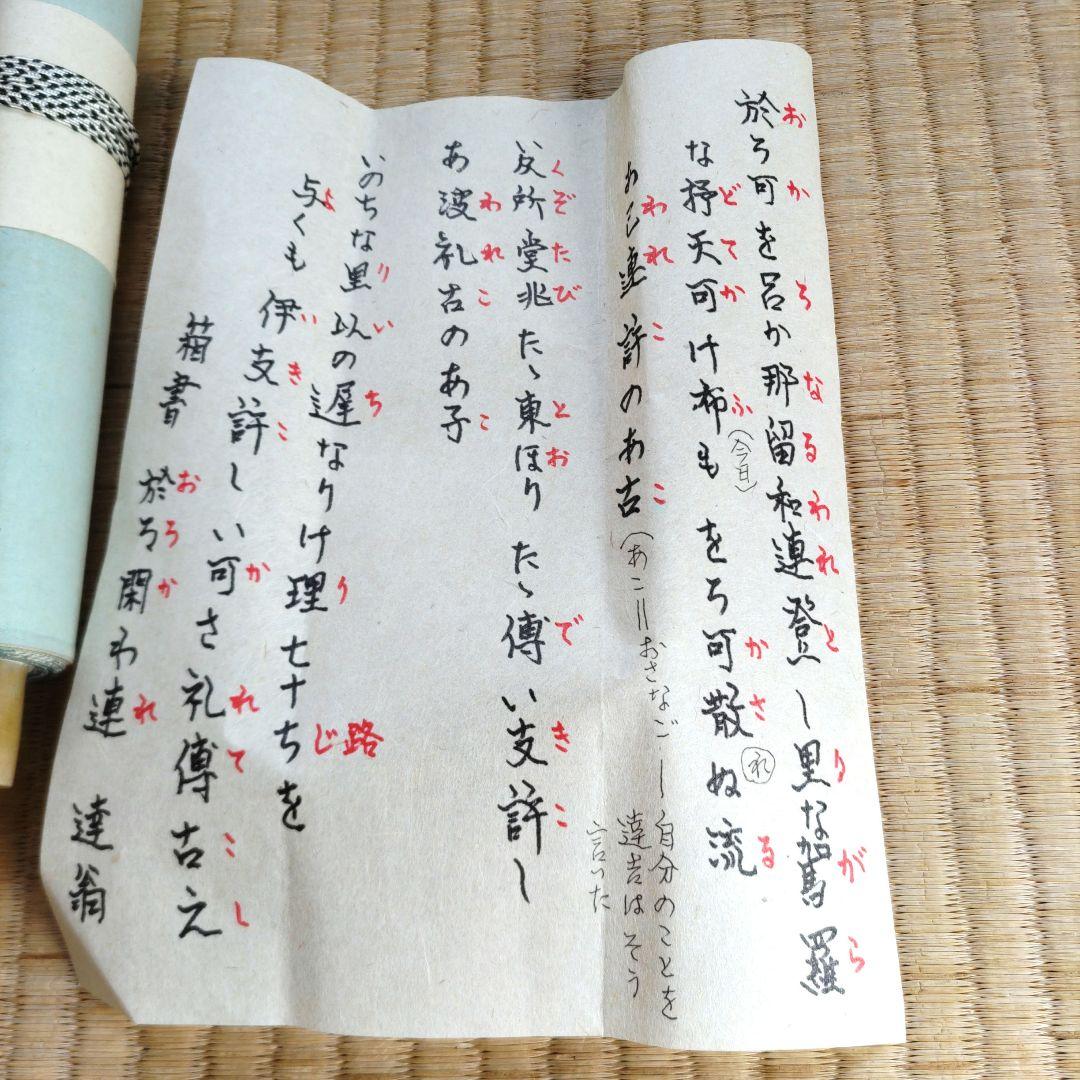 於ろ可を呂か那留和連登し里な賀羅
おかろなるわれとりがら
な抒天可け布も をろ可散ぬ流
どてかふかさる
(今日)
れ
わ連許のあ古
われここ
(あこ=おさなごー自分のことを
達吉はそう
言った
所堂兆たゝ東ほり たゝ傳い支許し
くぞたびとおできこ
あ波礼古のあ子
われここ
いのちな里以の遅なりけ理 七十ちを
りいちり
路じ
与くも 伊支許しい可さ礼傳古え
よいきこかれてこし
箱書 於ろ閑わ連 達翁
おろかれ